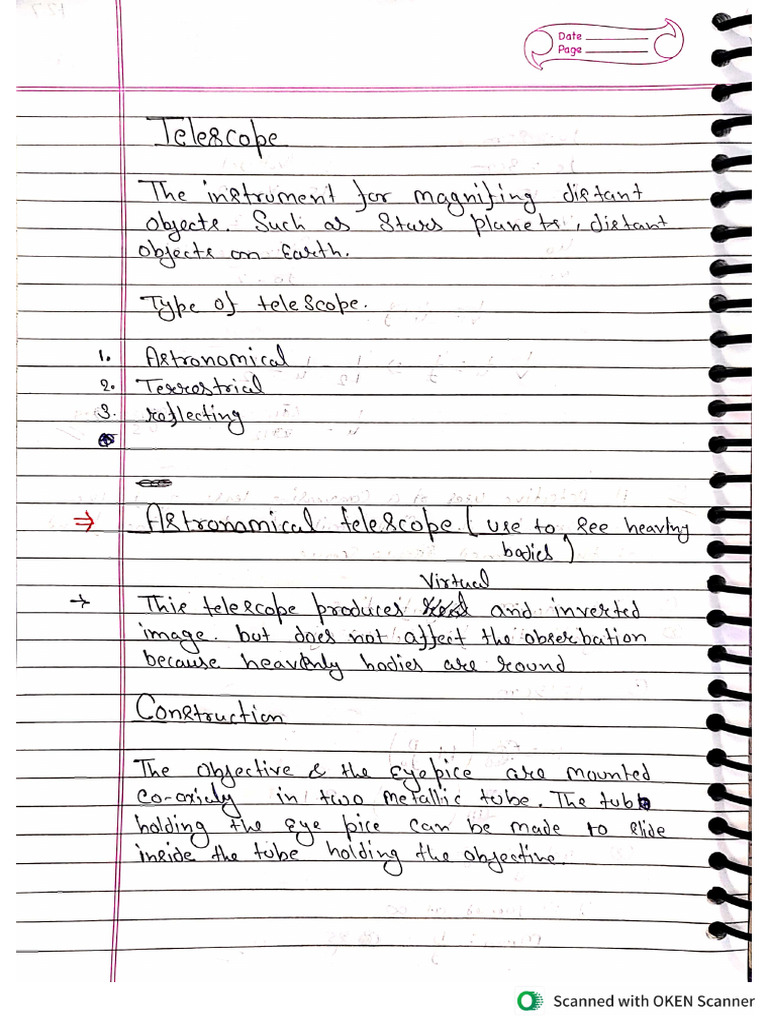 Date
Page
Telescope
The instrument for magnifing distant
objects. Such as Stars planets, distant
objects on Earth.
Type of telescope.
1. Astronomical
2. Terrestrial
3. reflecting
⇒ Astronomical telescope (use to see heavnly
bodies)
Virtual
→ This telescope produces and inverted
image. but does not affect the obserbation
because heavenly bodies are round
Construction
The objective & the Eyepice are mounted
co-axialy in two metallic tube. The tube
holding the eye pice can be made to slide
inside the tube holding the objective.
Scanned with OKEN Scanner